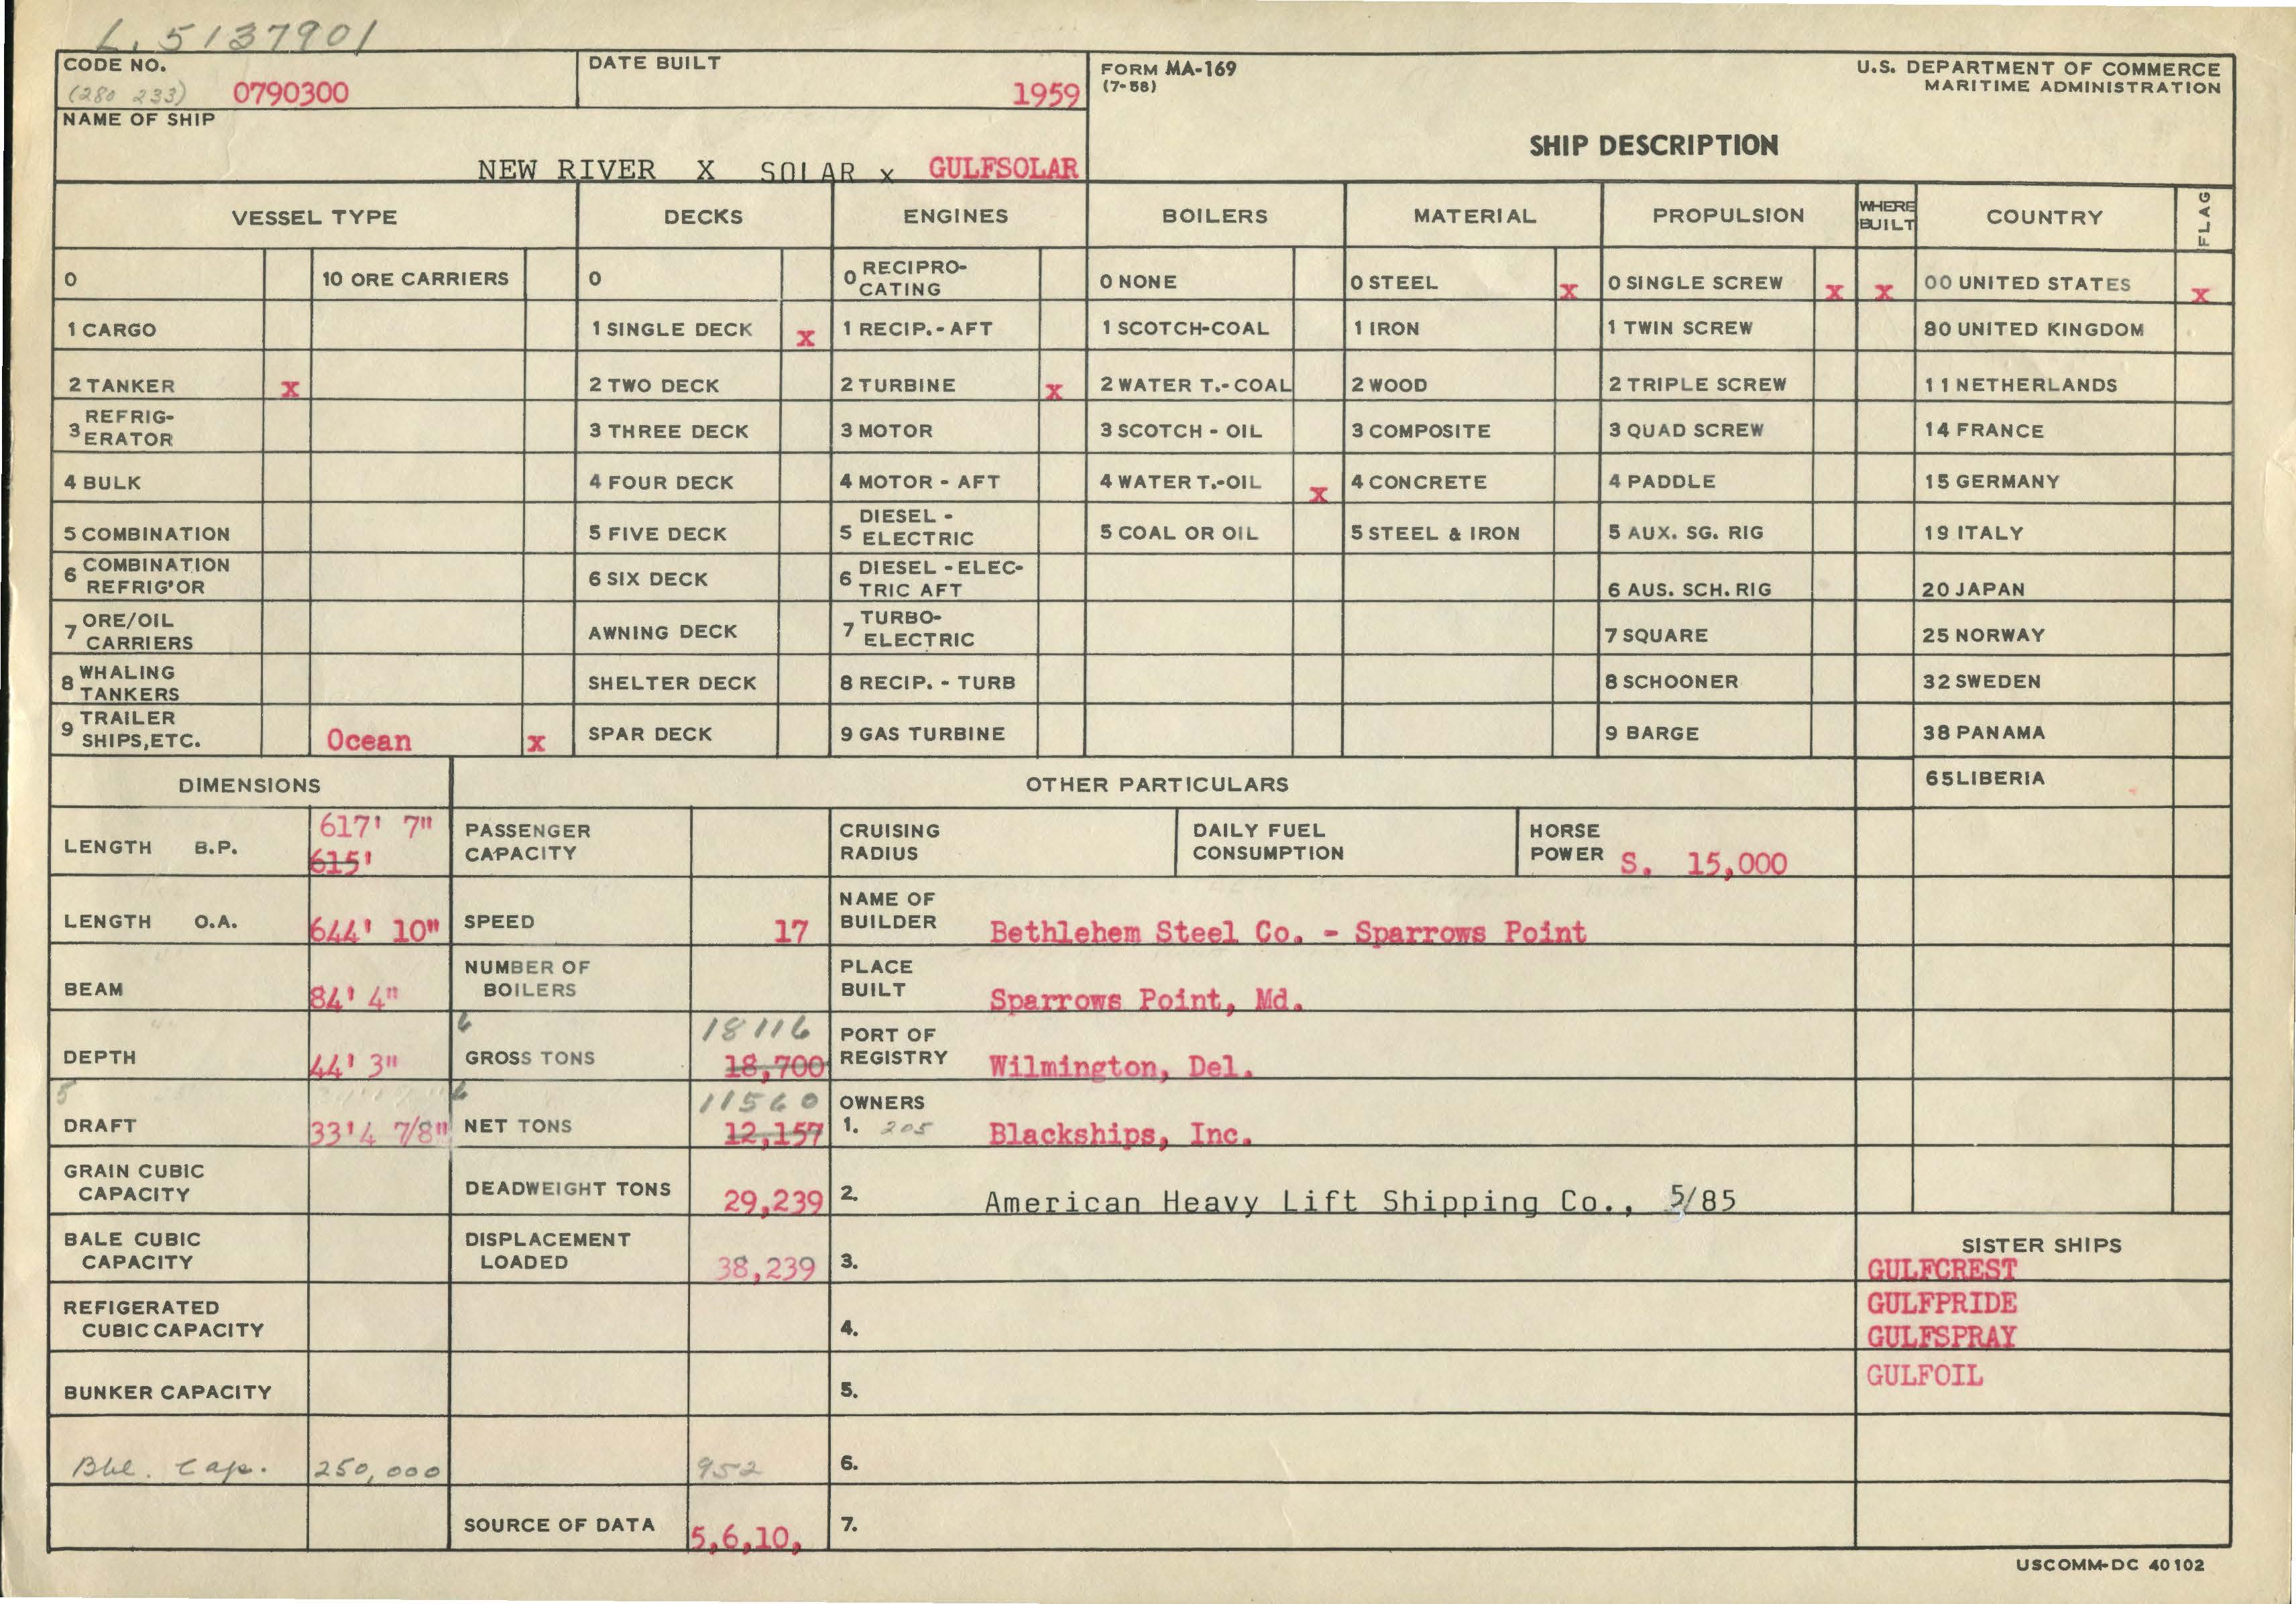 L. 5137901
CODE NO.
(280 233) 0790300
DATE BUILT
1959
FORM MA-169
(7-58)
U.S. DEPARTMENT OF COMMERCE
MARITIME ADMINISTRATION
NAME OF SHIP
NEW RIVER X SOLAR x GULFSOLAR
SHIP DESCRIPTION
VESSEL TYPE DECKS ENGINES BOILERS MATERIAL PROPULSION WHERE BUILT COUNTRY FLAG
0 10 ORE CARRIERS 0 0 RECIPRO-CATING 0 NONE 0 STEEL x 0 SINGLE SCREW x x 00 UNITED STATES x
1 CARGO 1 SINGLE DECK x 1 RECIP.-AFT 1 SCOTCH-COAL 1 IRON 1 TWIN SCREW 80 UNITED KINGDOM
2 TANKER x 2 TWO DECK 2 TURBINE x 2 WATER T.-COAL 2 WOOD 2 TRIPLE SCREW 11 NETHERLANDS
3 REFRIG-ERATOR 3 THREE DECK 3 MOTOR 3 SCOTCH - OIL 3 COMPOSITE 3 QUAD SCREW 14 FRANCE
4 BULK 4 FOUR DECK 4 MOTOR - AFT 4 WATER T.-OIL x 4 CONCRETE 4 PADDLE 15 GERMANY
5 COMBINATION 5 FIVE DECK 5 DIESEL - ELECTRIC 5 COAL OR OIL 5 STEEL & IRON 5 AUX. SG. RIG 19 ITALY
6 COMBINATION REFRIG'OR 6 SIX DECK 6 DIESEL - ELEC-TRIC AFT 6 AUS. SCH. RIG 20 JAPAN
7 ORE/OIL CARRIERS AWNING DECK 7 TURBO-ELECTRIC 7 SQUARE 25 NORWAY
8 WHALING TANKERS SHELTER DECK 8 RECIP. - TURB 8 SCHOONER 32 SWEDEN
9 TRAILER SHIPS, ETC. Ocean x SPAR DECK 9 GAS TURBINE 9 BARGE 38 PANAMA
DIMENSIONS OTHER PARTICULARS 65 LIBERIA
LENGTH B.P. 617' 7" 615' PASSENGER CAPACITY CRUISING RADIUS DAILY FUEL CONSUMPTION HORSE POWER S. 15,000
LENGTH O.A. 644' 10" SPEED 17 NAME OF BUILDER Bethlehem Steel Co. - Sparrows Point
BEAM 84' 4" NUMBER OF BOILERS PLACE BUILT Sparrows Point, Md.
DEPTH 44' 3" 6 GROSS TONS 18116 18,700 PORT OF REGISTRY Wilmington, Del.
5 DRAFT 33'4 7/8" 6 NET TONS 11560 12,157 OWNERS 1. 205 Blackships, Inc.
GRAIN CUBIC CAPACITY DEADWEIGHT TONS 29,239 2. American Heavy Lift Shipping Co., 5/85
BALE CUBIC CAPACITY DISPLACEMENT LOADED 38,239 3.
SISTER SHIPS
GULFCREST
REFIGERATED CUBIC CAPACITY 4.
GULFPRIDE
GULFSPRAY
BUNKER CAPACITY 5.
GULFOIL
Bbl. Cap. 250,000 952 6.
SOURCE OF DATA 5,6,10, 7.
USCOMM-DC 40102